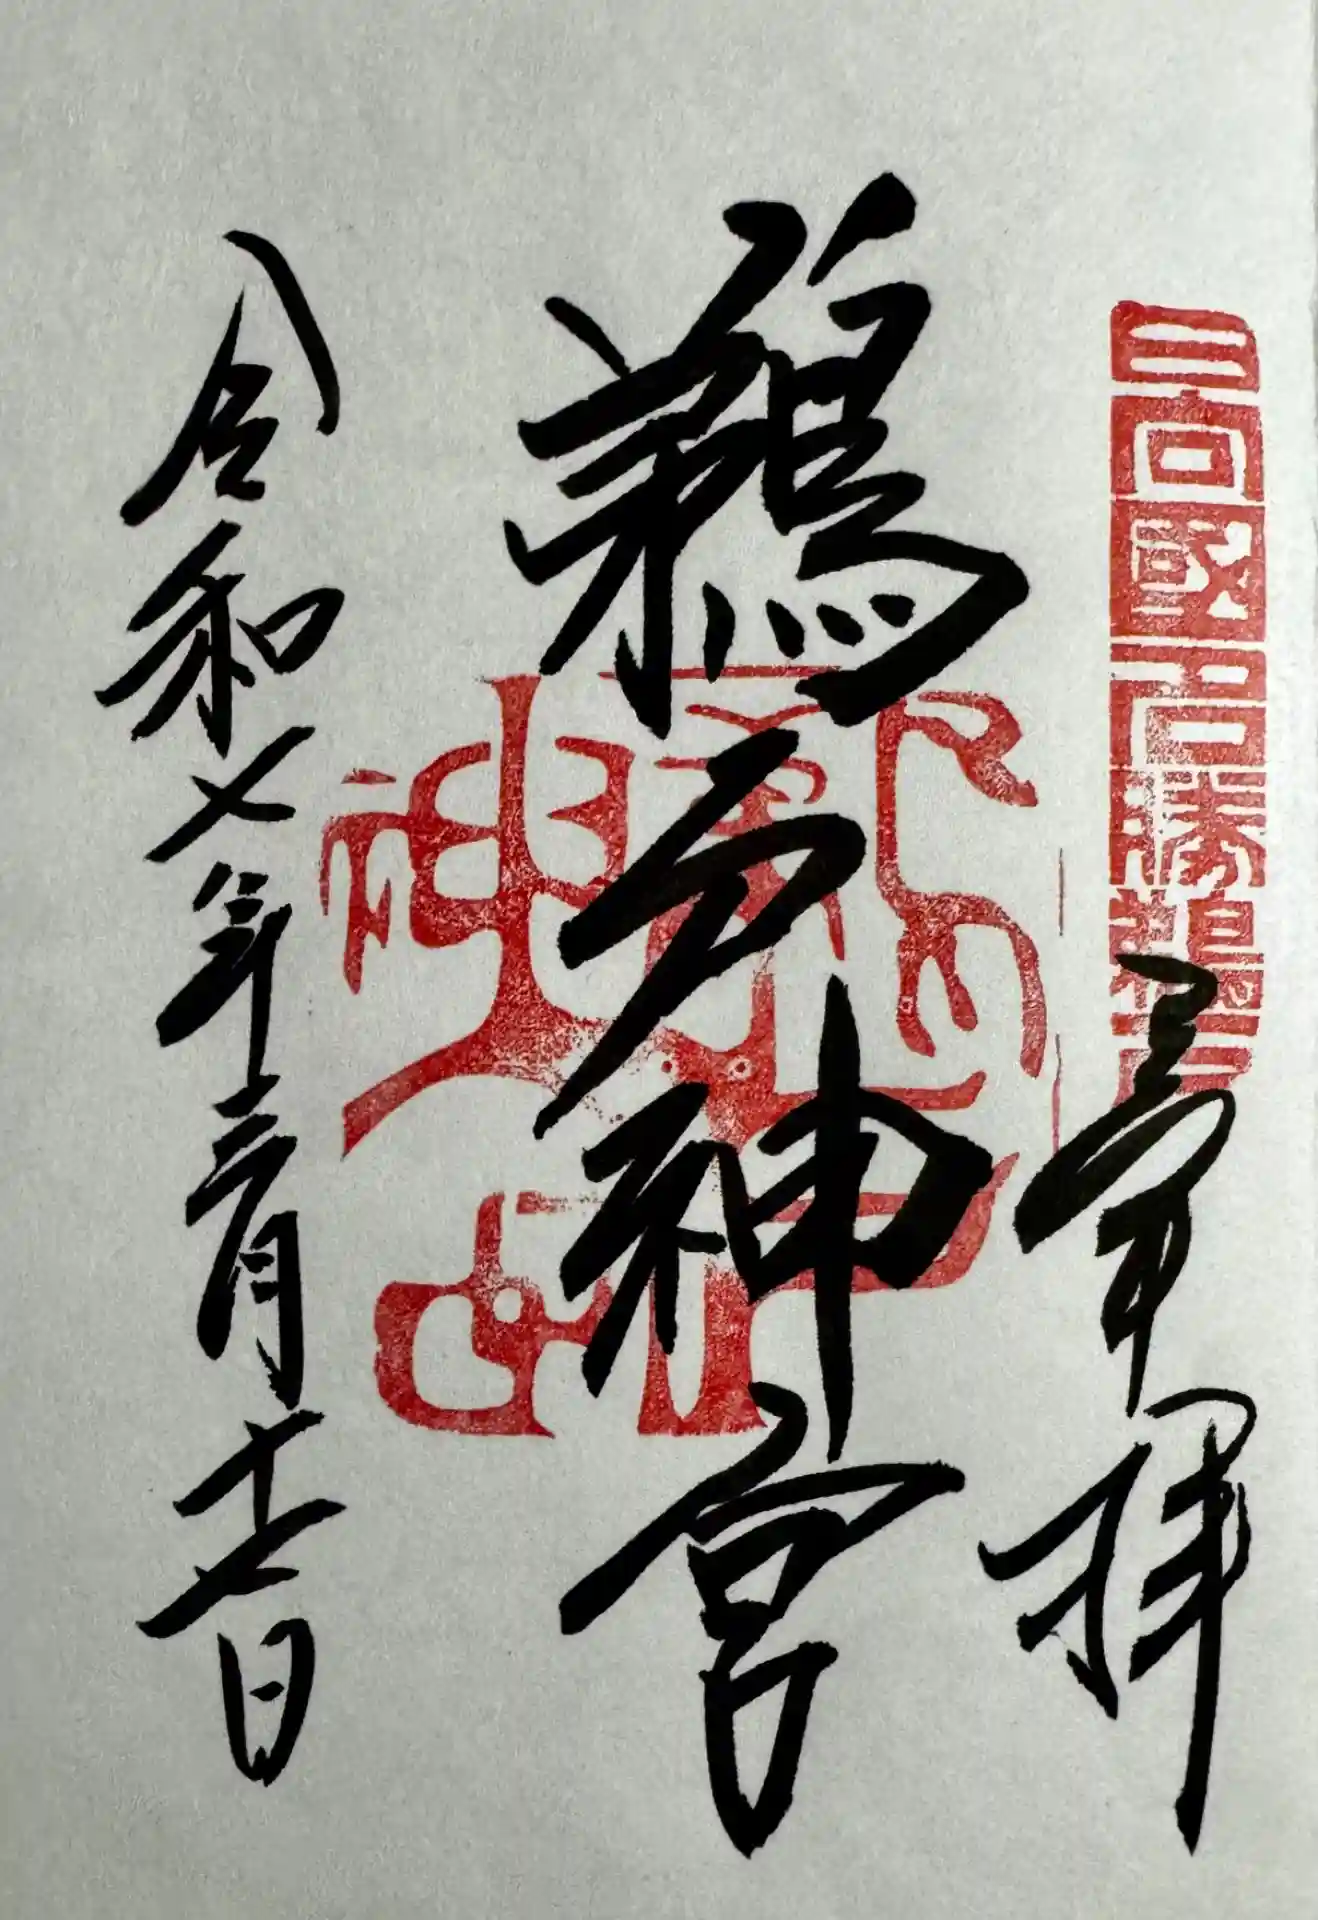 日向國名勝鵜戸
奉拝
鵜戸神宮
令和七年三月十一日